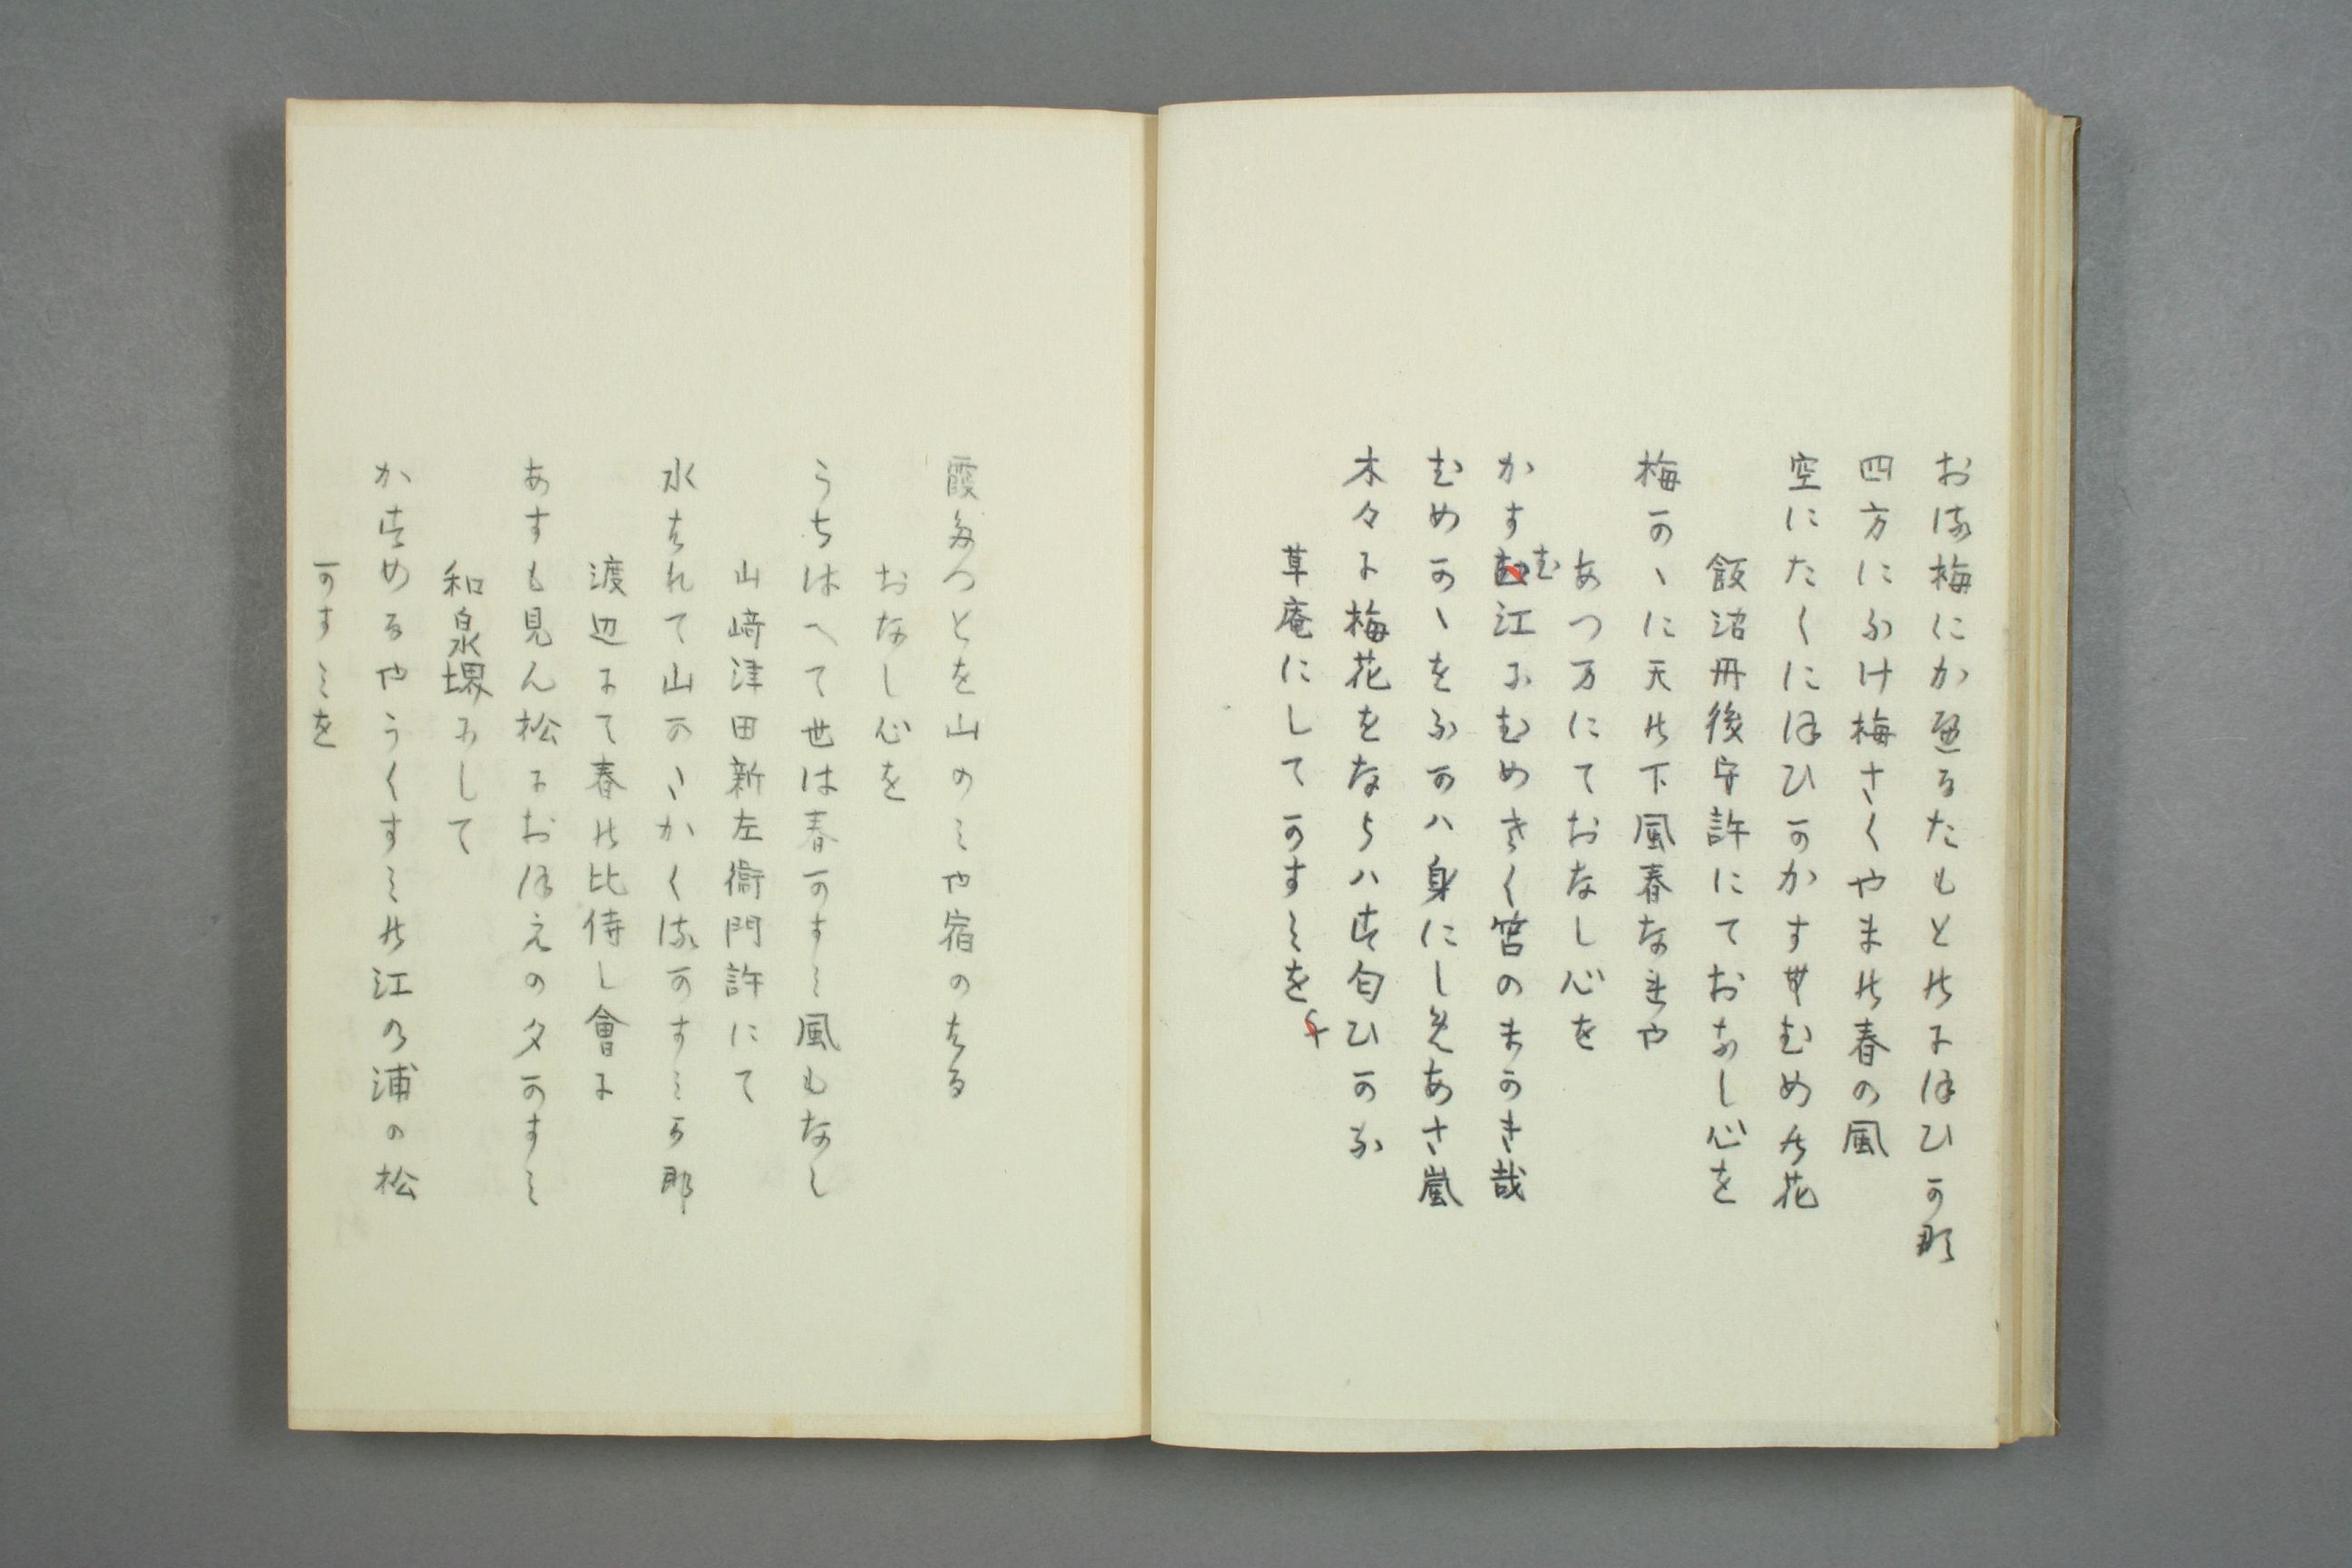 おる梅にかへるたもとのにほひかな
四方にふけ梅さくやまの春の風
空にたくにほひかかすせむめの花
飯沼丹後守許にておなし心を
梅かゝに天の下風春なれや
あつ万にておなし心を
かすむ江にむめさく宮のまかき哉
むめかゝをふかハ身にしめあさ嵐
木々に梅花をならハす匂ひかな
草庵にしてかすミを
霞たつとを山のミや宿のはる
おなし心を
うちはへて世は春かすミ風もなし
山﨑津田新左衛門許にて
水はれて山かゝかくるかすミかな
渡辺にて春の比侍し會に
あすも見ん松におほえの夕かすミ
和泉堺にして
かすめるやうくすミの江の浦の松
かすミを